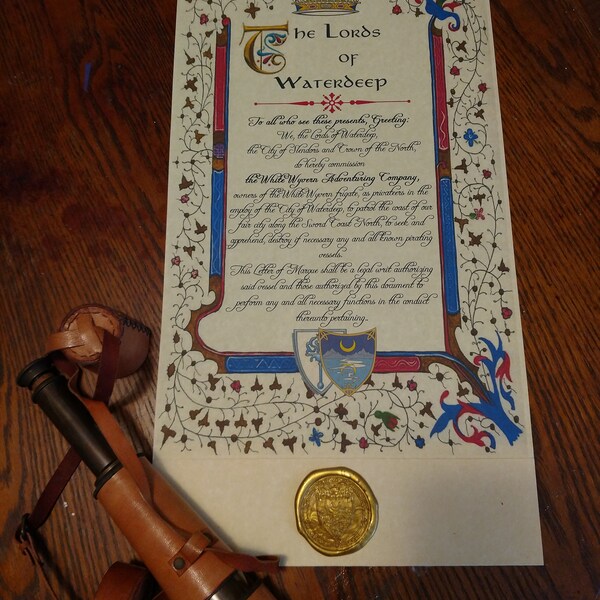 The Lords
of
Waterdeep
To all who see these presents, Greeting:
We, the Lords of Waterdeep,
the City of Slendors and Crown of the North,
do hereby commission
the White Wyvern Adventuring Company,
owners of the White Wyvern frigate, as privateers in the
employ of the City of Waterdeep, to patrol the coast of our
fair city along the Sword Coast North, to seek and
apprehend, destroy if necessary any and all known pirating
vessels.
This Letter of Marque shall be a legal writ authorizing
said vessel and those authorized by this document to
perform any and all necessary functions in the conduct
thereunto pertaining..